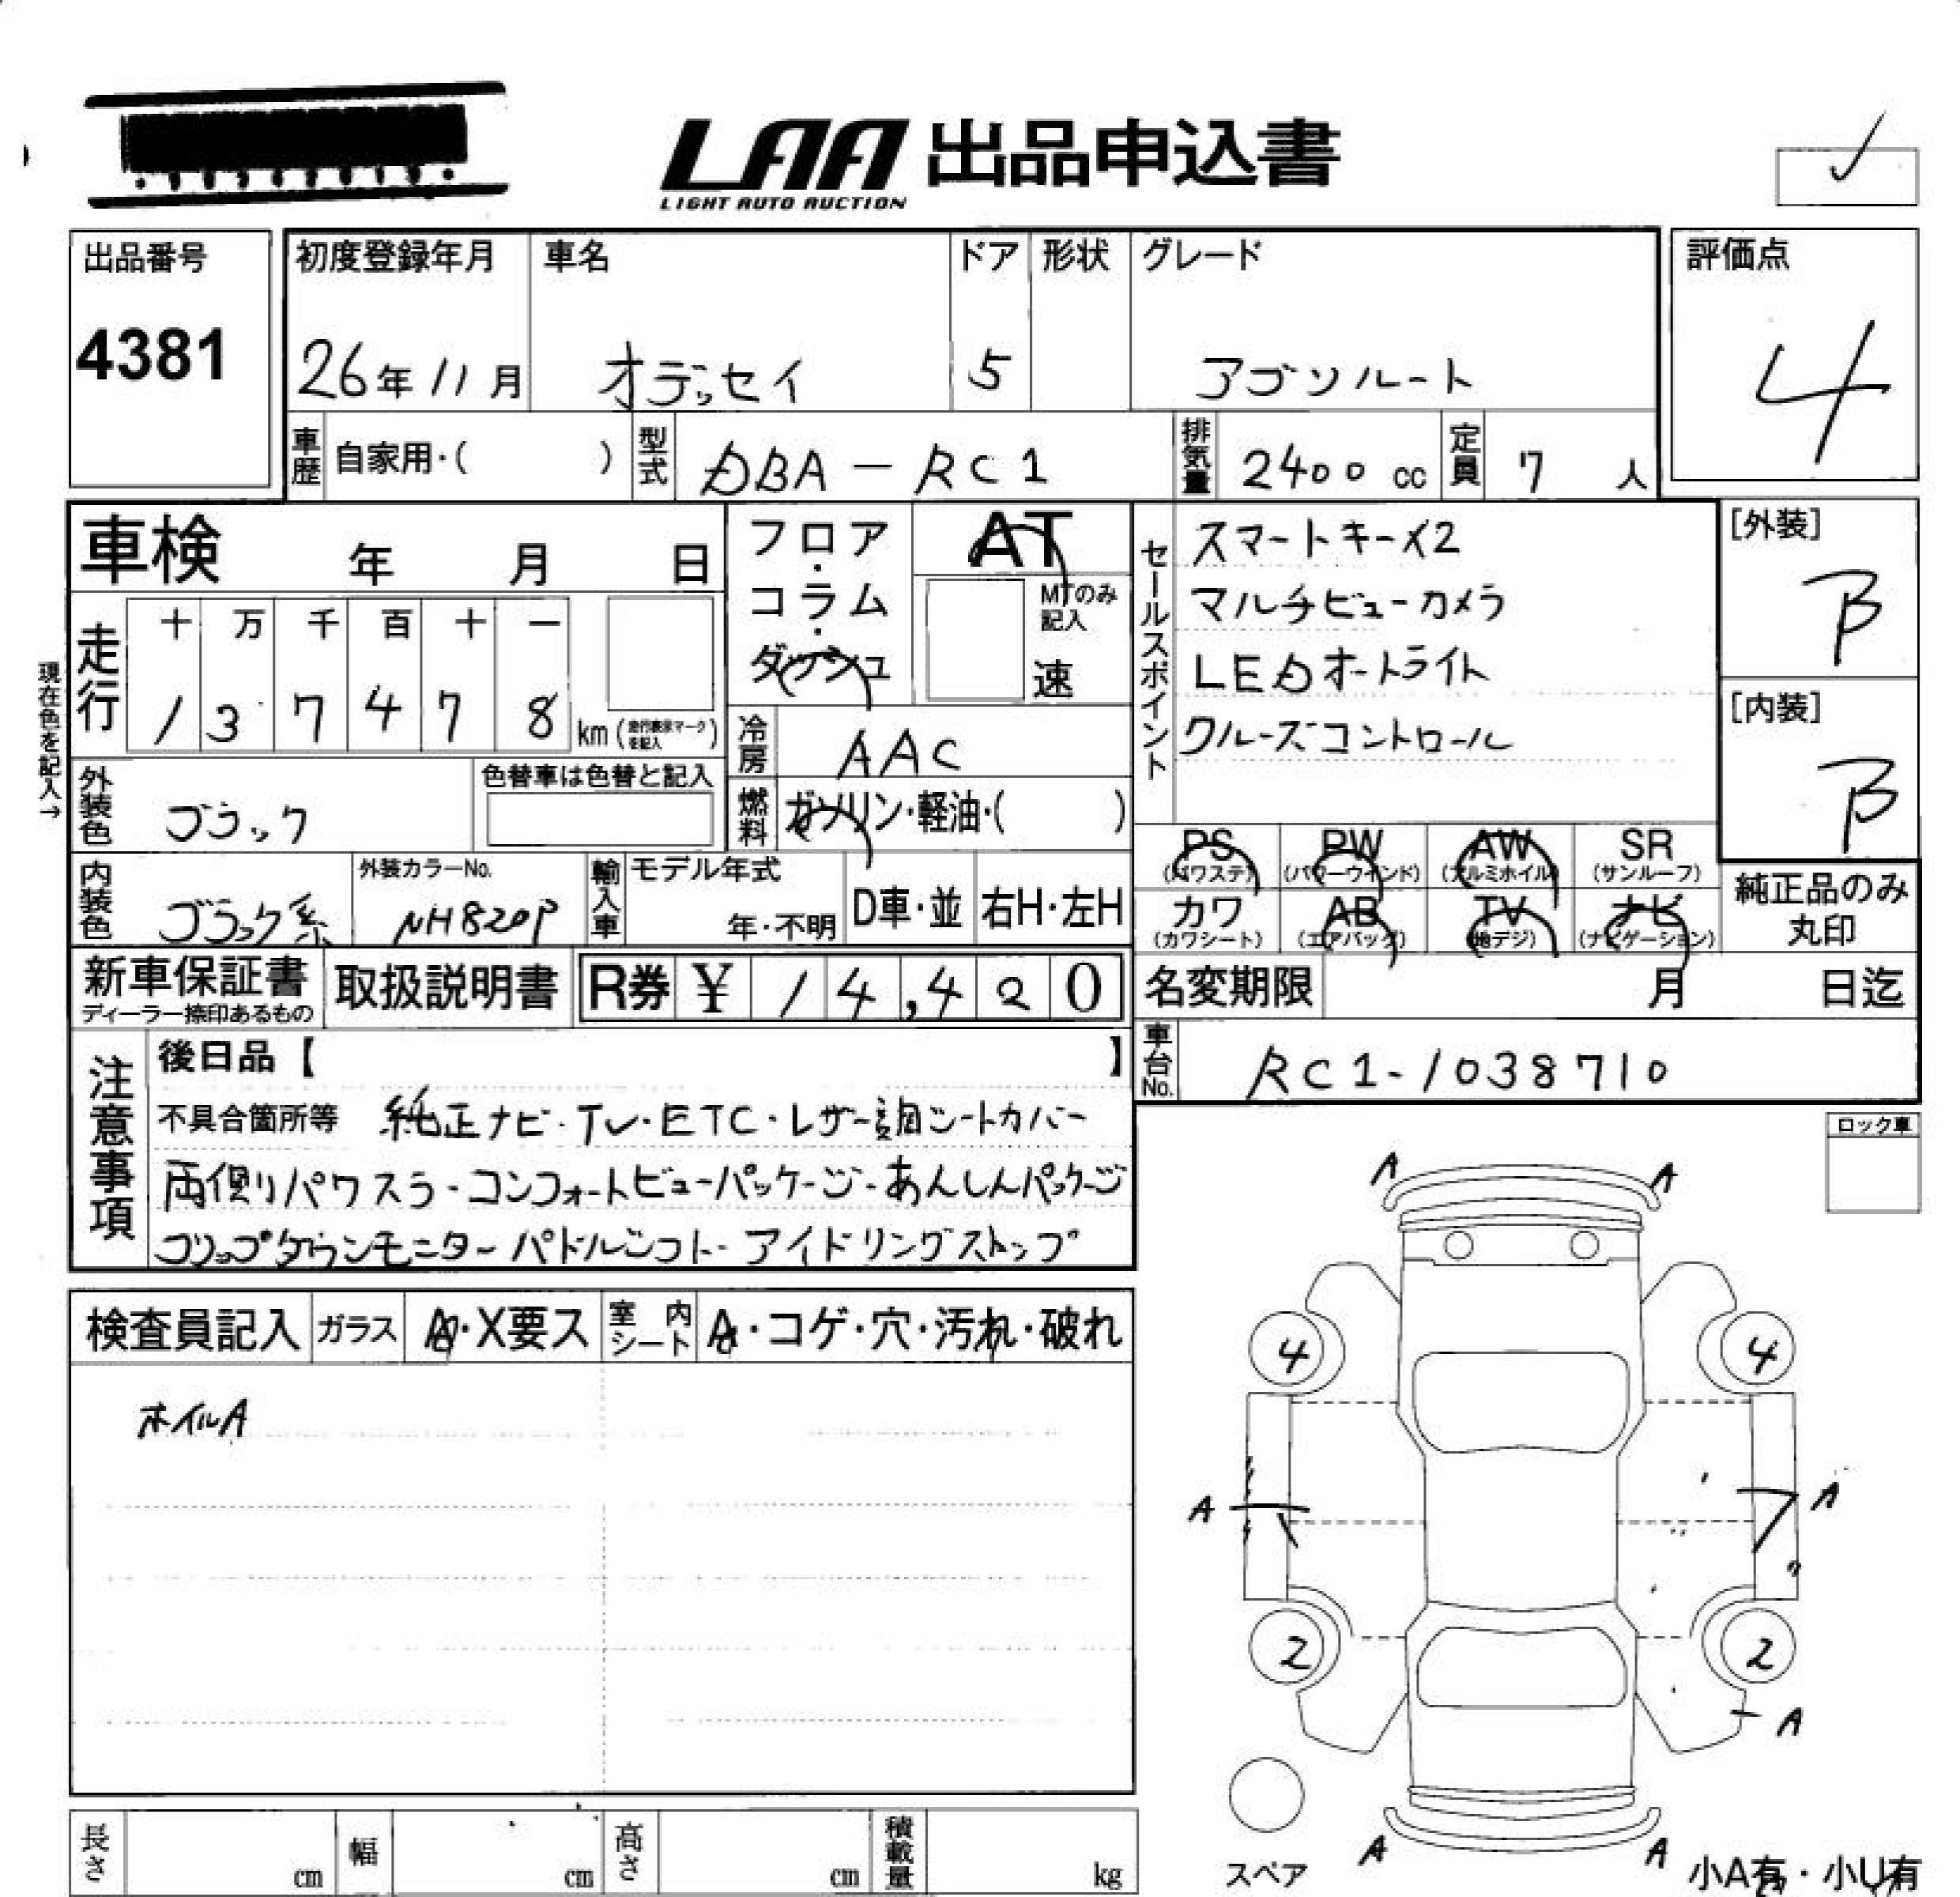 LAA 出品申込書
LIGHT AUTO AUCTION
出品番号
4381
初度登録年月
26年11月
車名
オデッセイ
ドア
5
形状
グレード
アブソルート
評価点
4
車歴 自家用・( )
型式 DBA-RC1
排気量 2400 cc
定員 7 人
車検 年 月 日
フロア・コラム・ダッシュ
AT
MTのみ記入
速
セールスポイント
スマートキー×2
マルチビューカメラ
LEDオートライト
クルーズコントロール
[外装]
B
[内装]
B
現在色を記入→
走行
十 万 千 百 十 一
1 3 7 4 7 8 km (走行表示マークを記入)
冷房 AAC
外装色 ブラック
色替車は色替と記入
燃料 ガソリン・軽油・( )
PS (パワステ) PW (パワーウインド) AW (アルミホイル) SR (サンルーフ)
カワ (カワシート) AB (エアバッグ) TV (地デジ) ナビ (ナビゲーション)
純正品のみ丸印
内装色 ブラック系
外装カラーNo. NH820P
輸入車 モデル年式 年・不明 D車・並 右H・左H
新車保証書
ディーラー捺印あるもの
取扱説明書
R券 ¥ 14,420
名変期限 月 日迄
車台No. RC1-1038710
注意事項
後日品【 】
不具合箇所等 純正ナビ・TV・ETC・レザー調シートカバー
両側パワスラ・コンフォートビューパッケージ・あんしんパッケージ
フリップダウンモニター・パドルシフト・アイドリングストップ
ロック車
検査員記入 ガラス A・X要ス 室内シート A・コゲ・穴・汚れ・破れ
ホイルA
A A
4 4
A A
2 2
A
A A
スペア
小A有・小U有
長さ cm 幅 cm 高さ cm 積載量 kg